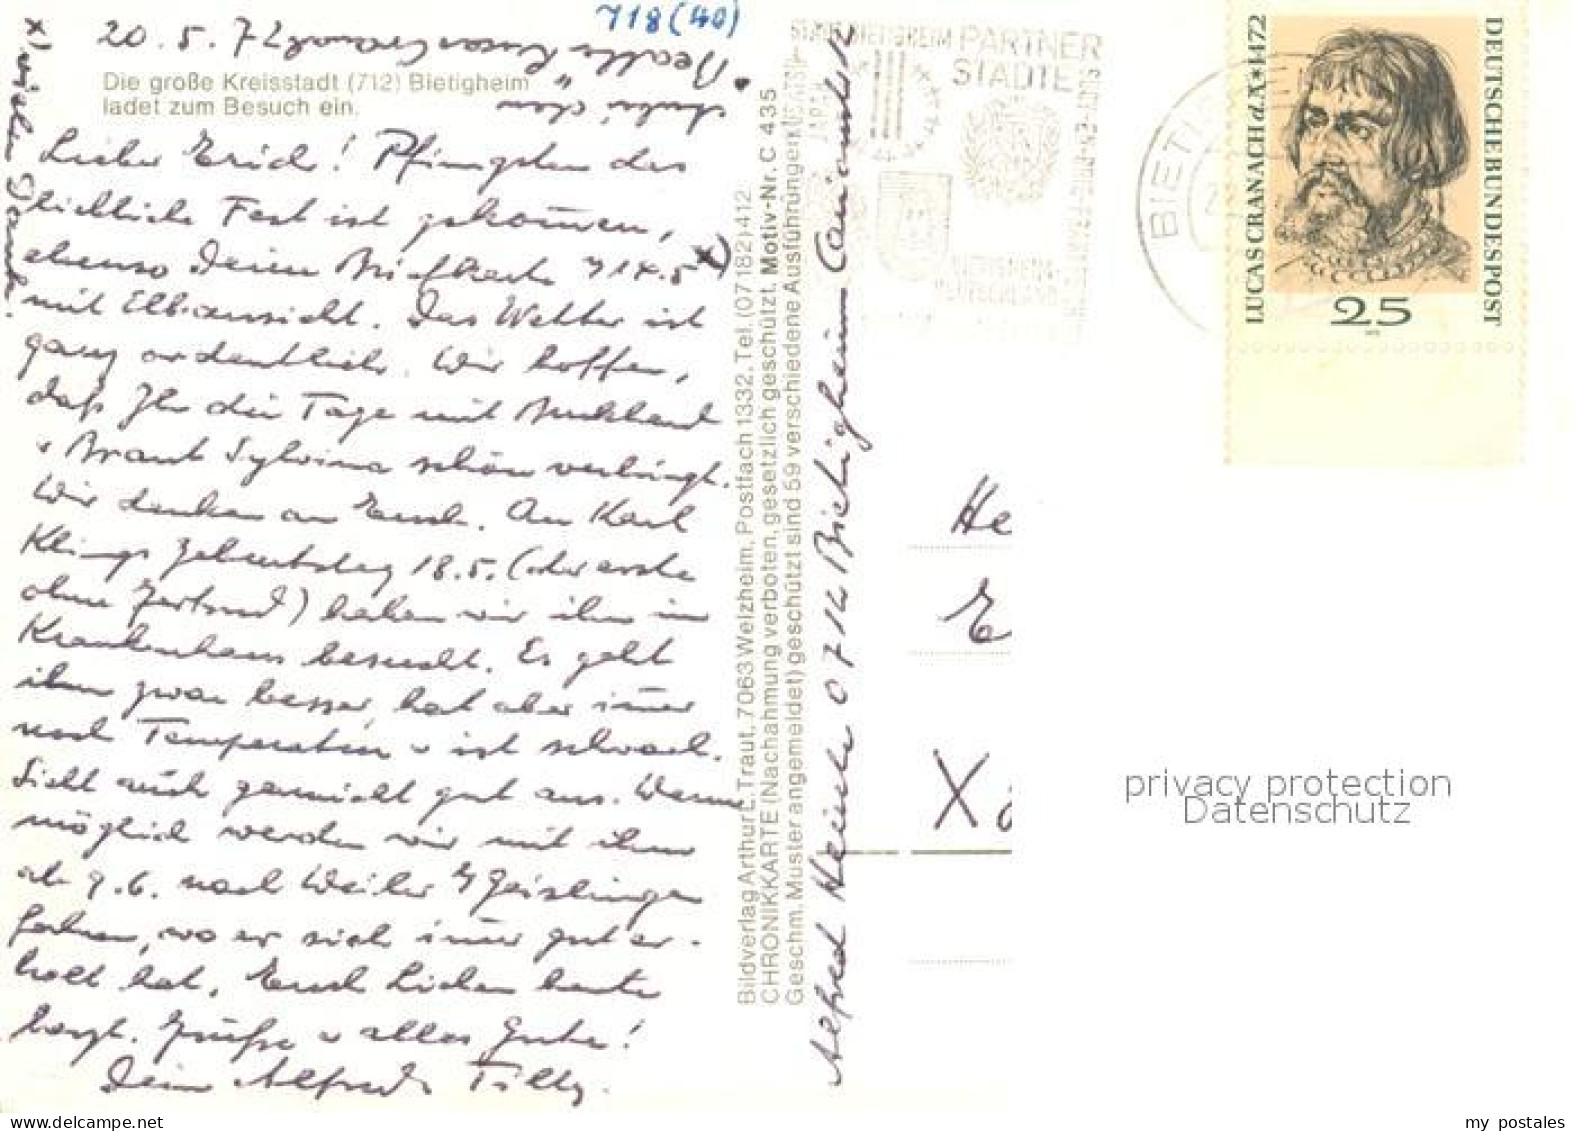 718 (40)
20. 5. 72
Die große Kreisstadt (712) Bietigheim
ladet zum Besuch ein.
Lieber Erich! Pfingsten das
liebliche Fest ist gekommen,
ebenso Deine Briefkarte v 14.5 x)
mit Elbansicht. Das Wetter ist
ganz ordentlich. Wir hoffen,
daß Ihr die Tage mit
Braut Sylvina schön verbringt.
Wir denken an Euch. An Karl
Klings Geburtstag 18.5. (der erste
ohne Gertrud) haben wir ihn im
Krankenhaus besucht. Es geht
ihm zwar besser, hat aber immer
noch Temperatur u ist schwach.
Sieht auch gar nicht gut aus. Wenn
möglich werden wir mit ihm
ab 9.6. nach Weiler b/ Geislingen
fahren, wo er sich immer gut er-
holt hat. Euch Lieben heute
herzl. Grüße u alles Gute!
Dein Alfred Tilly.
x) vielen Dank.
Bildverlag Arthur L. Traut, 7063 Welzheim, Postfach 1332, Tel. (07182) 412
CHRONIKKARTE (Nachahmung verboten, gesetzlich geschützt, Motiv-Nr. C 435
Geschm. Muster angemeldet) geschützt sind 59 verschiedene Ausführungen
Alfred Heinle 0 714 Bietigheim
STADT BIETIGHEIM PARTNER
STÄDTE
BIETIGHEIM-
DEUTSCHLAND
BIETIGHEIM
LUCAS CRANACH d.Ä. 1472
DEUTSCHE BUNDESPOST
25
He
E
X
privacy protection
Datenschutz
www.delcampe.net
my_postales